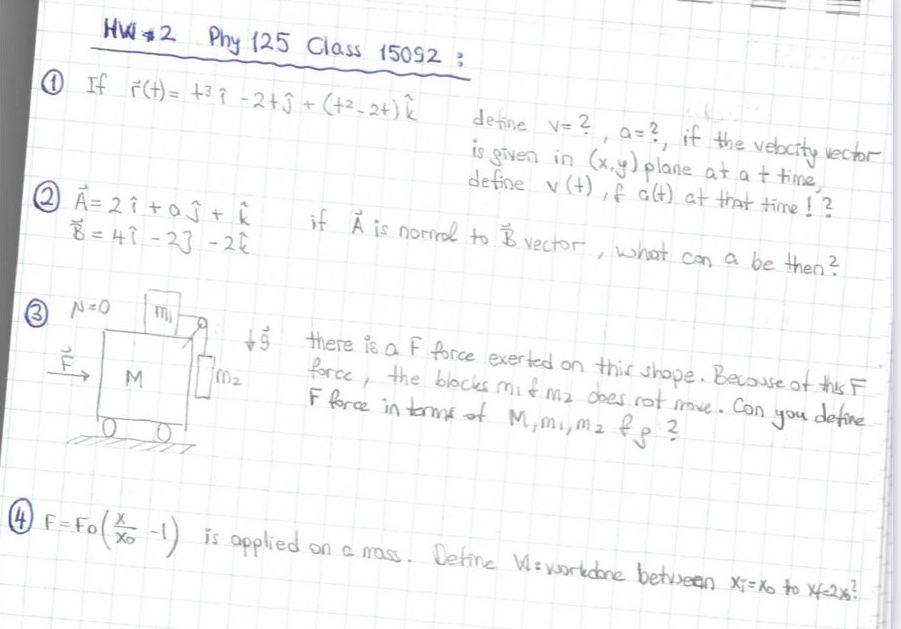 HW#2 Phy 125 Class 15092 :
① If r⃗(t) = t³ î - 2t ĵ + (t² - 2t) k̂
define v = ?, a = ?, if the velocity vector
is given in (x,y) plane at a t time,
define v(t), & a(t) at that time ! ?
② A⃗ = 2 î + a ĵ + k̂
B⃗ = 4 î - 2 ĵ - 2k̂
if A⃗ is normal to B⃗ vector, what can a be then?
③ N=0
m₁
g⃗
F⃗
M
m₂
there is a F force exerted on this shape. Because of this F
force, the blocks m₁ & m₂ does not move. Can you define
F force in terms of M, m₁, m₂ & g ?
④ F = F₀ (x/x₀ - 1) is applied on a mass. Define W = workdone between xᵢ = x₀ to xf = 2x₀?